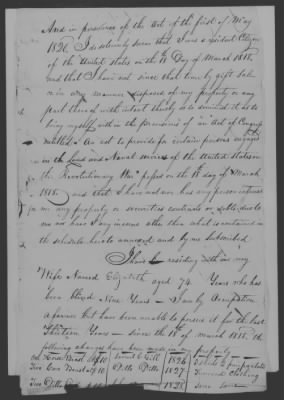 And in pursuance of the Act of the first of May
1820. I do solemnly swear that I was a resident Citizen
of the United States on the 18 Day of March 1818.
and that I have not since that time by gift sale
or in any manner disposed of my property or any
part thereof with intent thereby so to diminish it as to
bring myself within the provisions of an act of Congress
entitled "An act to provide for certain persons engaged
in the Land and Naval service of the United States in
the Revolutionary War" passed on the 18 day of March
1818. and that I have not nor has any person in trust
for me any property or securities contracts or debts due to
me nor have I any income other than what is contained in
the schedule hereto annexed and by me subscribed
I have residing with me my
Wife Named Elizabeth aged 74. Years who has
been Years I am by Occupation
a farmer but have been unable to pursue it for the last
thirteen Years since the 18th of march 1818. the
following changes have been made in my property
1826
Ditto Ditto 1827
1828